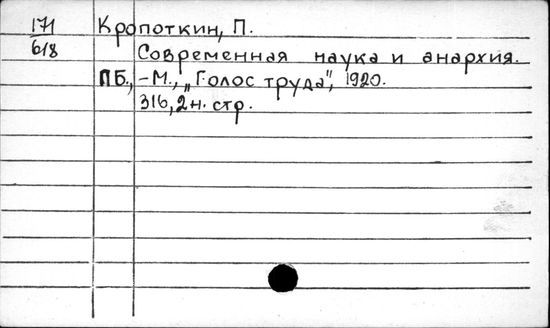 171 Кропоткин, П.
618 Современная наука и анархия.
ПБ., –М., „Голос труда", 1920.
316, 2 н. стр.